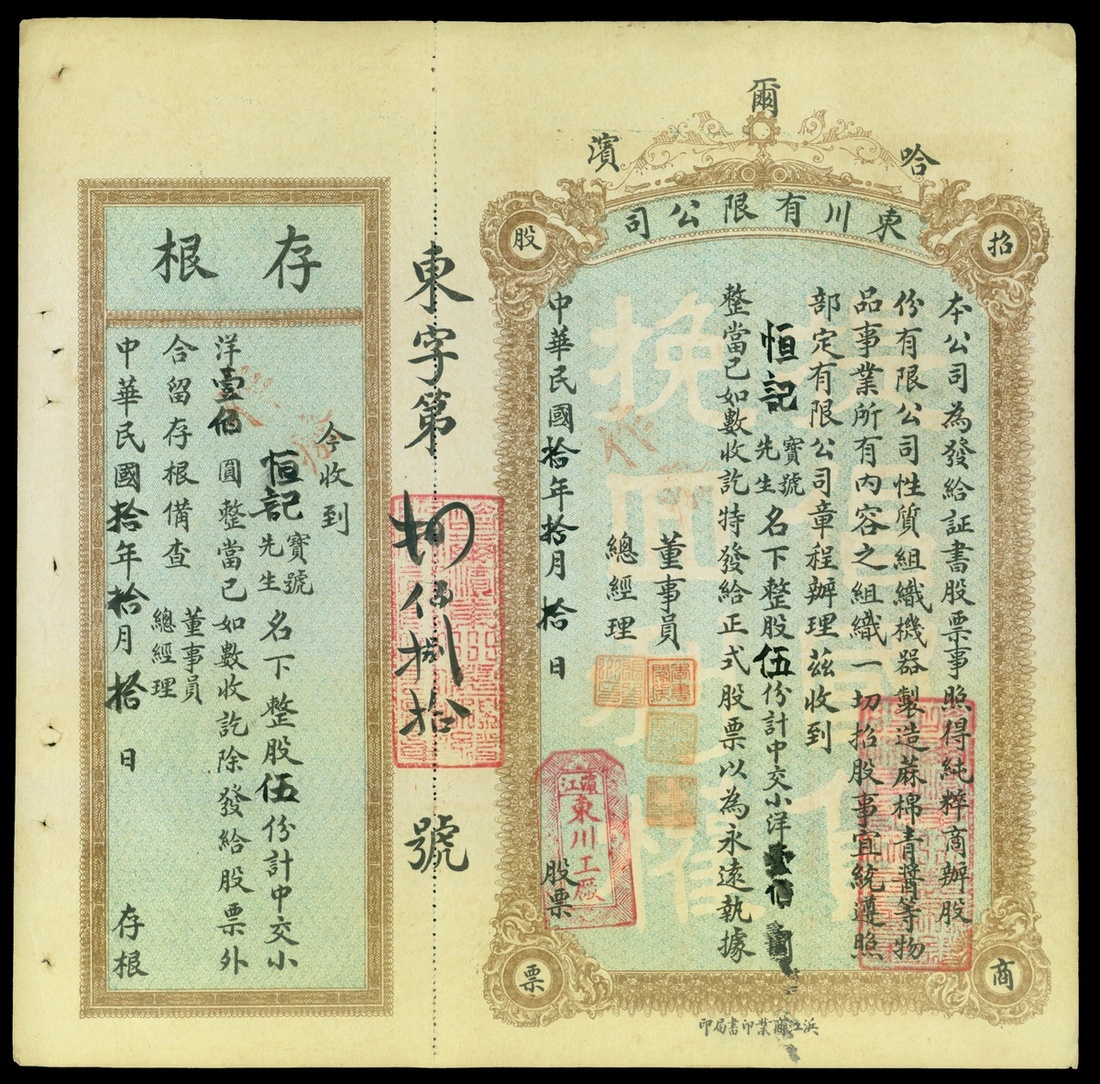 哈爾濱
東川有限公司
招商股票
本公司為發給証書股票事照得純粹商辦股
份有限公司性質組織機器製造蔴棉青醬等物
品事業所有內容之組織一切招股事宜統遵照
部定有限公司章程辦理茲收到
恒記寶號先生名下整股伍份計中交小洋壹佰圓
整當已如數收訖特發給正式股票以為永遠執據
董事員
總經理
中華民國拾年拾月拾日
股票
挽回
東川工廠
濱江商業印書局印
東字第
伯捌拾
號
存根
今收到
恒記寶號先生名下整股伍份計中交小
洋壹佰圓整當已如數收訖除發給股票外
合留存根備查
董事員
總經理
中華民國拾年拾月拾日
存根